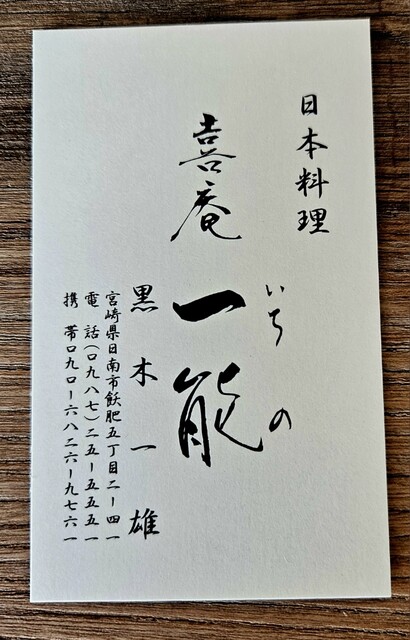 日本料理
いちの
喜庵 一能
黒木一雄
宮崎県日南市飫肥五丁目二ー四一
電話(〇九八七)二五ー五五五一
携帯〇九〇ー六八二六ー九七六一